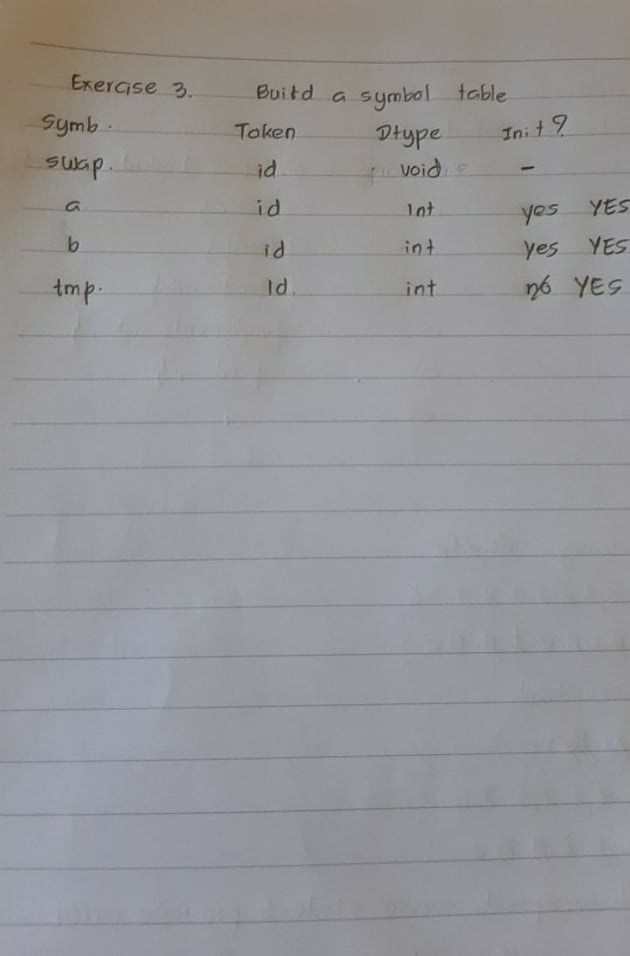 Exercise 3. Build a symbol table
Symb. Token Dtype Init?
swap. id void -
a. id Int yes YES
b id int yes YES
tmp. Id. int no YES